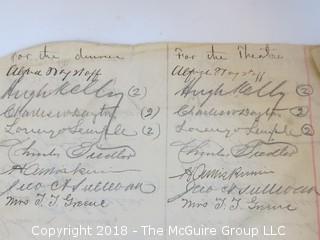 For the dinner
Alfred Wagstaff
Hugh Kelly (2)
Charles W Dayton (2)
Lorenzo Semple (2)
Charles Tiedler
Geo. H Sullivan
Mrs T. F. Greene
For the Theatre
Alfred Wagstaff
Hugh Kelly (2)
Charles W Dayton (2)
Lorenzo Semple (2)
Charles Tiedler
Geo. H Sullivan
Mrs T. F. Greene
Copyright 2018 - The McGuire Group LLC